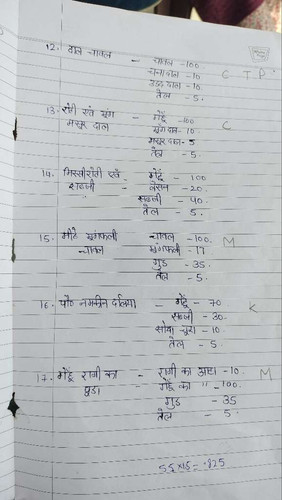 12. दाल चावल - चावल -100
चनादाल -10
उडद दाल -10
तेल - 5.
C T P
13. रोटी एवं मूंग - गेहूँ -100
मसूर दाल मूंग दाल - 10.
मसूर दाल - 5
तेल - 5.
C
14. मिस्सीरोटी एवं - गेहूँ - 100
सब्जी - बेसन -20.
सब्जी - 40.
तेल - 5.
15. मीठे मूंगफली - चावल -100. M
चावल मूंगफली -17
गुड -35.
तेल - 5.
16. पौ० नमकीन दलिया - गेहूँ - 70
सब्जी - 30. K
सोया चूरा - 10.
तेल - 5.
17. गेहूँ रागी का - रागी का आटा -10. M
पुडा - गेहूँ का " -100.
गुड - 35
तेल - 5.
55x15 = 825